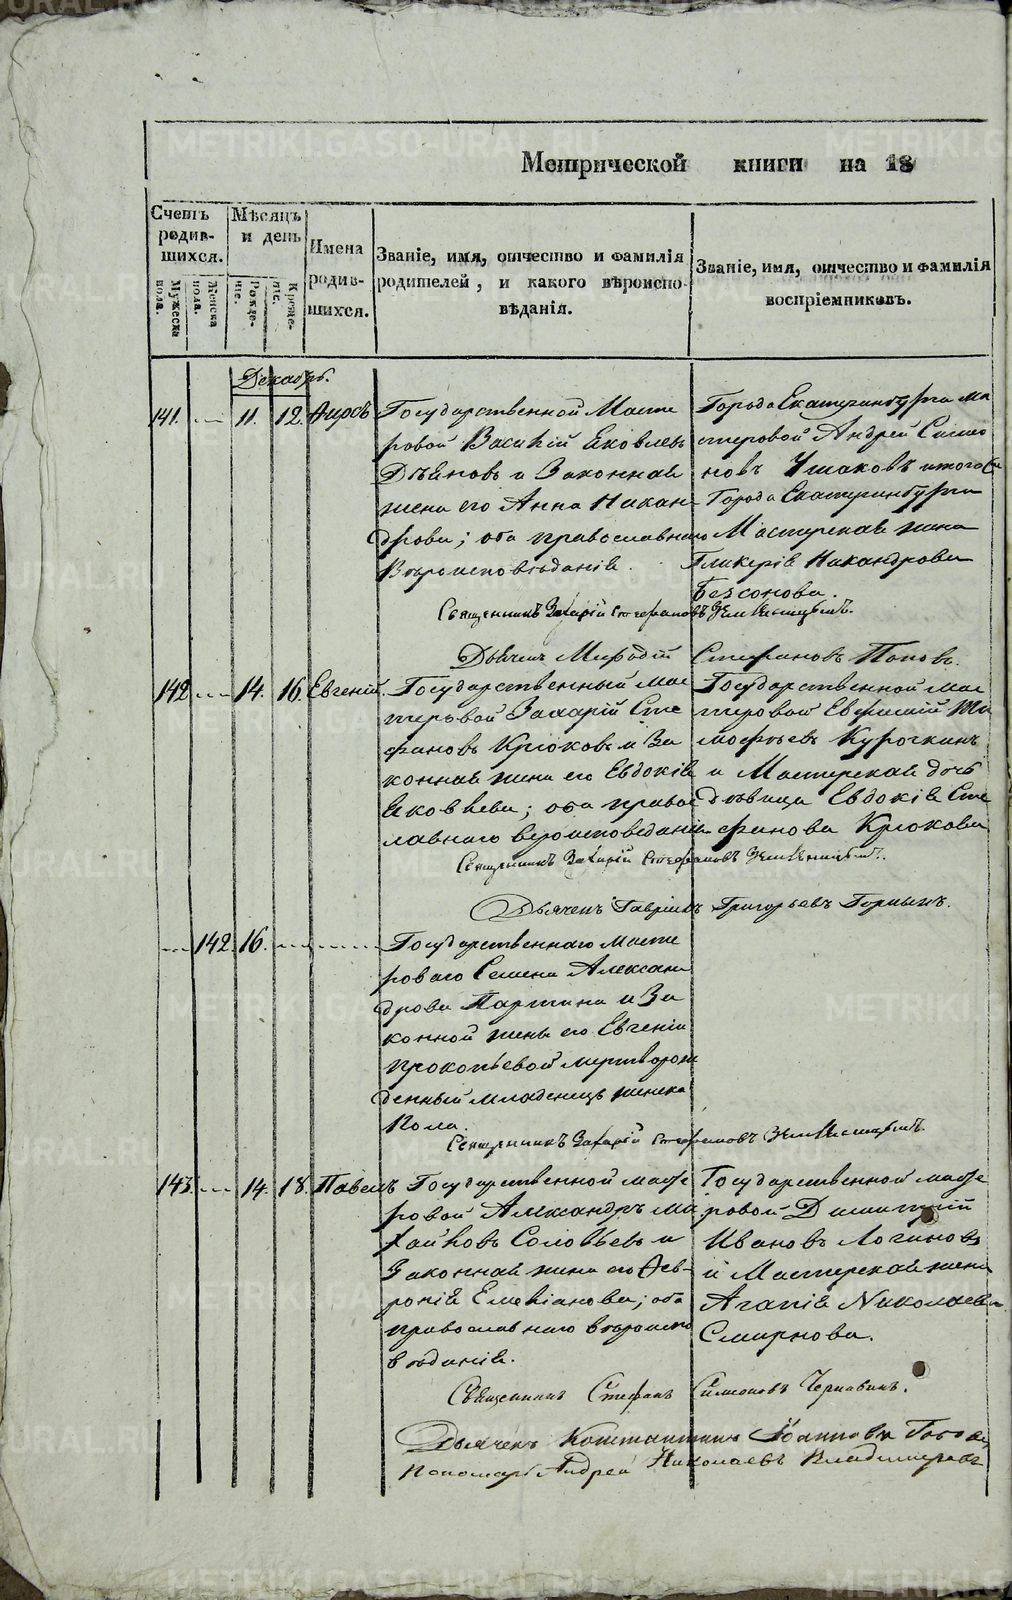 Метрической книги на 18
Счетъ родив-шихся.
Мужеска пола.
Женска пола.
Мѣсяцъ и день
Рожде-нія.
Креще-нія.
Имена родив-шихся.
Званіе, имя, отчество и фамилія родителей, и какого вѣроиспо-вѣданія.
Званіе, имя, отчество и фамилія воспріемниковъ.
Декабрь.
141. 11. 12.
Государственной Масте
ровой Василій Яковлевъ
и Законная
жена его Анна Никан
дрова; оба православнаго
Вѣроисповѣданія.
Города Екатеринбурга ма
стеровой Андрей Симео
новъ Ушаковъ
Города Екатеринбурга
Мастерская жена
Гликерія Никандрова
Безсонова.
Священникъ Захарій Стефановъ
Дьячекъ Мефодій Стефановъ Поповъ.
142 14. 16. Евгеній.
Государственный мас
теровой Захарій Сте
фановъ Крюковъ и За
конная жена его Евдокія
Яковлева; оба правос
лавнаго вероисповеданія
Государственной мас
теровой Евфимій Ти
мофѣевъ Курочкинъ
и Мастерская дочь
дѣвица Евдокія Сте
фанова Крюкова
Священникъ Захарій Стефановъ
Дьячекъ Гавріилъ Григорьевъ Горныхъ.
142. 16.
Государственнаго масте
роваго Семена Алексан
дрова Партина и За
конной жены его Евгеніи
прокопьевой мертворож
денный младенецъ женска
Пола.
Священникъ Захарій Стефановъ
143. 14. 18. Павелъ
Государственной масте
ровой Александръ Ми
хайловъ Соловьевъ и
Законная жена его Фев-
ронія Емеліанова; оба
православнаго вѣроиспо
вѣданія.
Государственной масте
ровой Димитрій
Ивановъ Логиновъ
и Мастерская жена
Агапія Николаева
Смирнова.
Священникъ Стефанъ Симеоновъ Чернавинъ.
Дьячекъ Константинъ Іоанновъ
Пономарь Андрей Николаевъ Владимировъ
METRIKI.GASO-URAL.RU